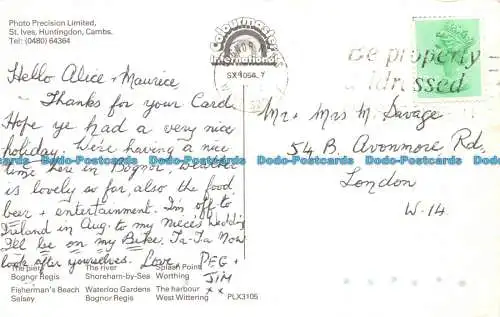 Photo Precision Limited,
St. Ives, Huntingdon, Cambs.
Tel: (0480) 64364
Colourmaster
International
SX 1054. Y
Be properly
addressed
Hello Alice + Maurice,
Thanks for your Card.
Hope ye had a very nice
holiday. We're having a nice
time here in Bognor, weather
is lovely so far, also the food,
beer + entertainment. I'm off to
Ireland in Aug. to my niece's wedding
I'll be on my Bike. Ta-Ta Now
look after yourselves. Love
PEG +
JIM
x x
Mr + Mrs M. Savage
54 B. Avonmore Rd.
London
W-14
Dodo-Postcards Dodo-Postcards Dodo-Postcards Dodo-Postcards Dodo-Postcards
The pier
Bognor Regis
The river
Shoreham-by-Sea
Splash Point
Worthing
Fisherman's Beach
Selsey
Waterloo Gardens
Bognor Regis
The harbour
West Wittering
PLX3105